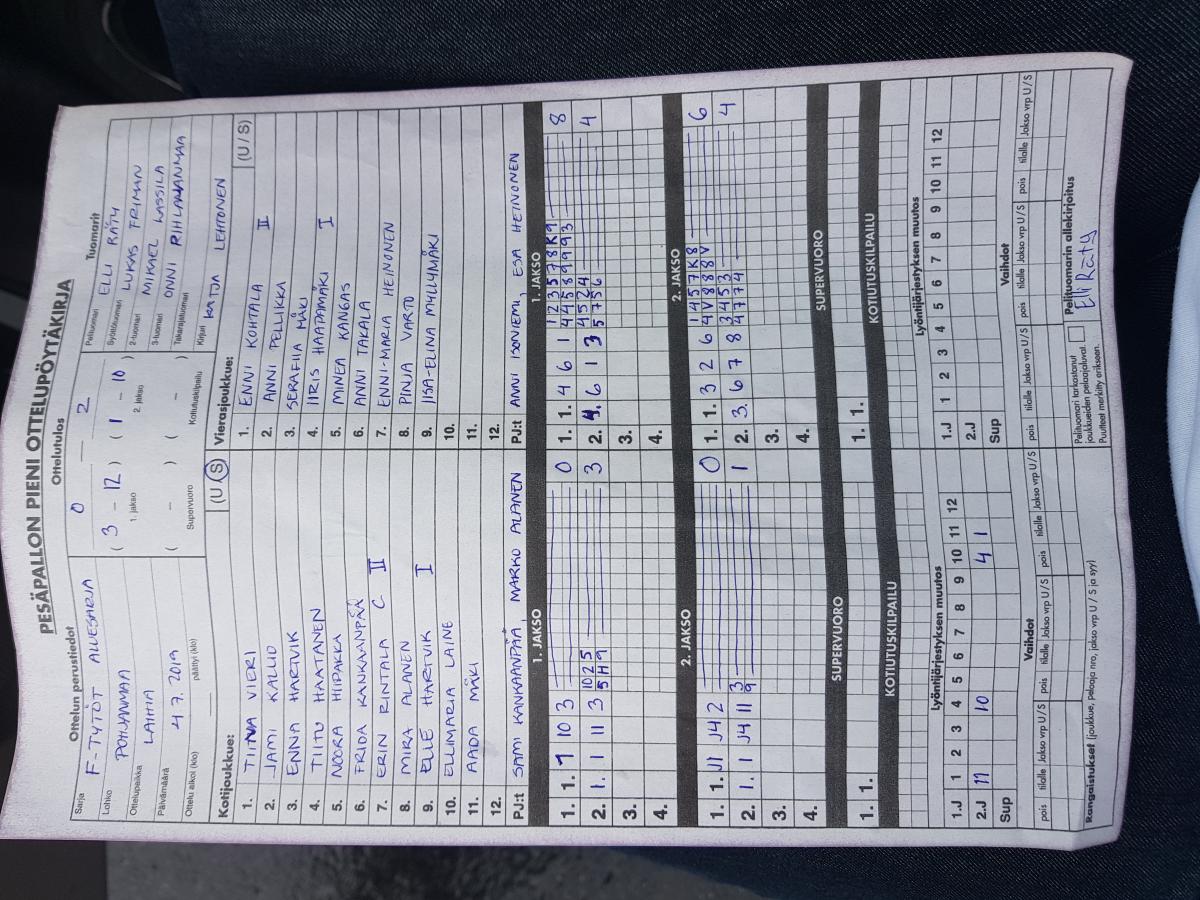 PESÄPALLON PIENI OTTELUPÖYTÄKIRJA
Ottelun perustiedot
Sarja F-TYTÖT ALUESARJA
Lohko POHJANMAA
Ottelupaikka LAIHIA
Päivämäärä 4 7. 2019
Ottelu alkoi (klo) päättyi (klo)
Ottelutulos
0 – 2
( 3 – 12 ) ( 1 – 10 )
1. jakso 2. jakso
( – ) ( – )
Supervuoro Kotiutuskilpailu
Tuomarit
Pelituomari ELLI RÄTY
Syöttötuomari LUKAS FRIMAN
2-tuomari MIKAEL LASSILA
3-tuomari ONNI RIHLAMANMAA
Takarajatuomari
Kirjuri KATJA LEHTONEN
Kotijoukkue: (U / S)
1. TIINA VIERI
2. JAMI KALLIO
3. ENNA HARTVIK
4. TIITU HAATANEN
5. NOORA HIIPAKKA
6. FRIDA KANKAANPÄÄ
7. ERIN RINTALA C II
8. MIRA ALANEN
9. ELLE HARTVIK I
10. ELLIMARIA LAINE
11. AADA MÄKI
12.
PJ:t SAMI KANKAANPÄÄ, MARKO ALANEN
Vierasjoukkue: (U / S)
1. ENNI KOHTALA
2. ANNI PELLIKKA II
3. SERAFIIA MÄKI
4. IIRIS HAAPAMÄKI I
5. MINEA KANGAS
6. ANNI TAKALA
7. ENNI-MARJA HEINONEN
8. PINJA VARTO
9. IISA-ELINA MYLLYMÄKI
10.
11.
12.
PJ:t ANNI ISONIEMI, ESA HEINONEN
1. JAKSO
1. 1. 7 10 3 0
2. 1. 1 11 3 10 2 5 3
5 H 9
3.
4.
1. JAKSO
1 2 3 5 7 8 K 9
1. 1. 4 6 1 4 4 5 8 9 9 9 3 8
4 5 2 4
2. 4. 6 1 3 5 7 5 6 4
3.
4.
2. JAKSO
1. 1. J1 J4 2 0
2. 1. 1 J4 11 3 1
9
3.
4.
2. JAKSO
1 4 5 7 K 8
1. 1. 3 2 6 4 V 8 8 8 V 6
3 4 5 3
2. 3. 6 7 8 4 7 7 4 4
3.
4.
SUPERVUORO
1. 1.
SUPERVUORO
1. 1.
KOTIUTUSKILPAILU
KOTIUTUSKILPAILU
Lyöntijärjestyksen muutos
1 2 3 4 5 6 7 8 9 10 11 12
1.J
2.J 11 10 4 1
Sup
Lyöntijärjestyksen muutos
1.J 1 2 3 4 5 6 7 8 9 10 11 12
2.J
Sup
Vaihdot
pois tilalle Jakso vrp U / S pois tilalle Jakso vrp U / S pois tilalle Jakso vrp U / S
Vaihdot
pois tilalle Jakso vrp U / S pois tilalle Jakso vrp U / S pois tilalle Jakso vrp U / S
Rangaistukset (joukkue, pelaaja nro, jakso vrp U / S ja syy)
Pelituomari tarkastanut
joukkueiden pelaajaluvat.
Puutteet merkitty erikseen.
Pelituomarin allekirjoitus
Elli Räty